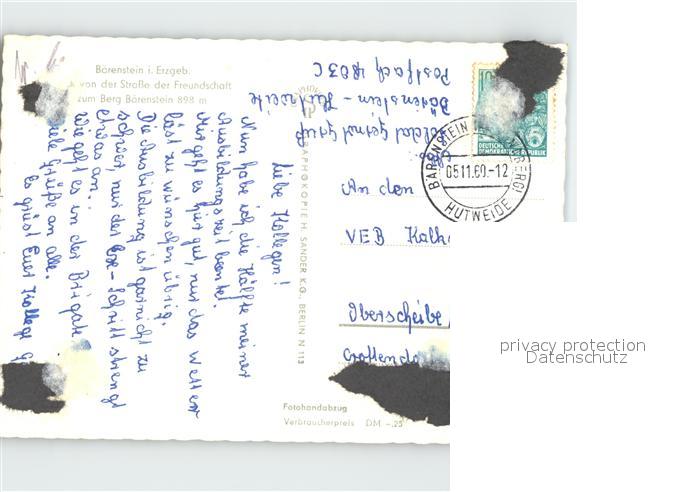 Bärenstein i. Erzgeb.
von der Straße der Freundschaft
zum Berg Bärenstein 898 m
Liebe Kollegen!
Nun habe ich die Hälfte meiner
Ausbildungszeit beendet.
Mir geht es hier gut, nur das Wetter
lässt zu wünschen übrig.
Die Ausbildung ist garnicht so
schwer, nur der Exe-Schritt strengt
etwas an.
Wie geht es in der Brigade
viele Grüße an alle.
Es grüßt Euer Kollege
APHOKOPIE H. SANDER K.G., BERLIN N 113
Soldat Gernot
Bärenstein - Hutweide
Postfach 4803 C
10
DEUTSCHE
DEMOKRATISCHE REPUBLIK
BÄRENSTEIN
05.11.60.-12
HUTWEIDE
An den
VEB Kalk
Oberscheibe
Fotohandabzug
Verbraucherpreis DM -.25
privacy protection
Datenschutz